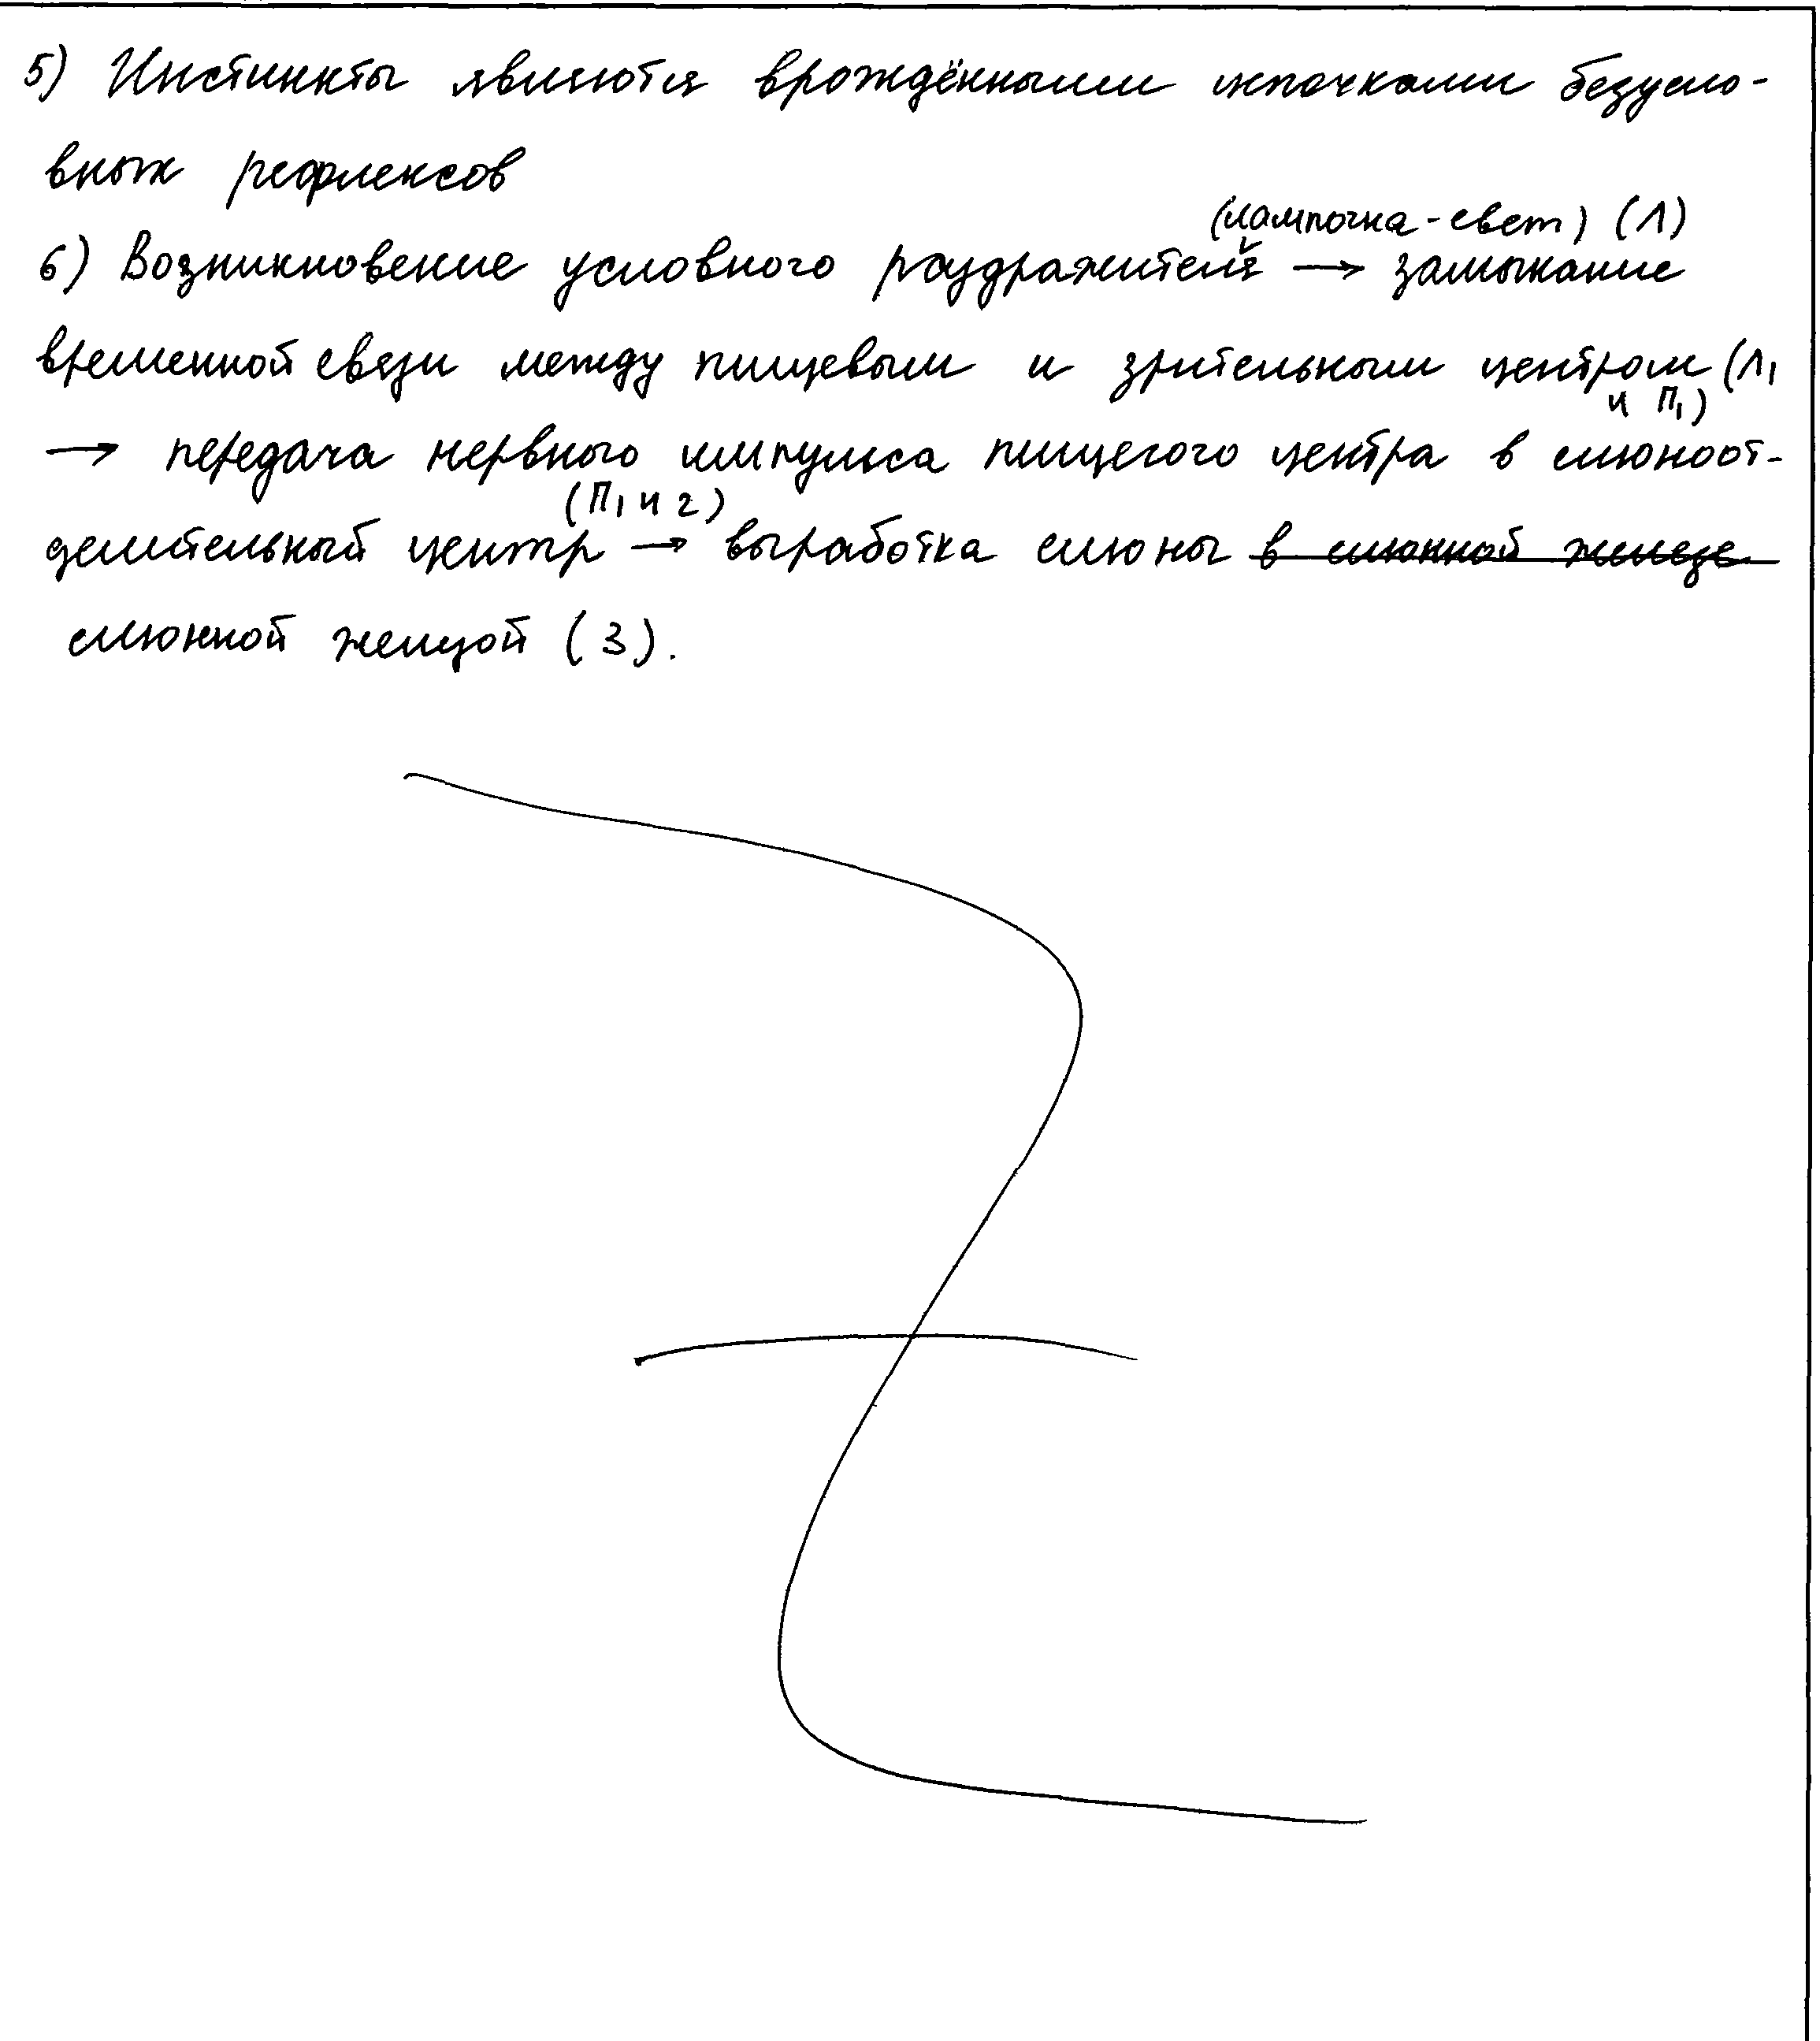 5) Инстинкты являются врождёнными цепочками безусло-
вных рефлексов
(лампочка - свет) (Л)
6) Возникновение условного раздражителя → замыкание
временной связи между пищевым и зрительным центром (Л₁
и П₁)
→ передача нервного импульса пищегого центра в слюноот-
(П₁ и 2)
делительный центр → выработка слюны в слюнной железе
слюнной железой (3).